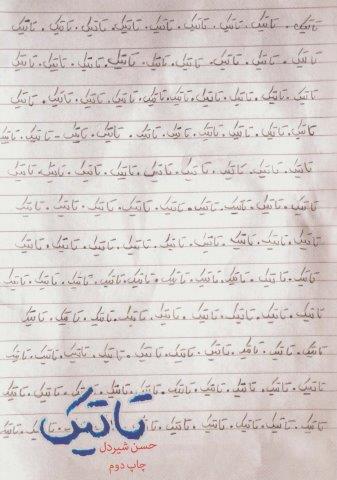 تاتیک . تاتیک . تاتیک . تاتیک . تاتیک . تاتیک . تاتیک . تاتیک
تاتیک . تاتیک . تاتیک . تاتیک . تاتیک . تاتیک . تاتیک . تاتیک
تاتیک . تاتیک . تاتیک . تاتیک . تاتیک . تاتیک . تاتیک . تاتیک . تاتیک
تاتیک . تاتیک . تاتیک . تاتیک . تاتیک . تاتیک . تاتیک . تاتیک . تاتیک
تاتیک . تاتیک . تاتیک . تاتیک . تاتیک . تاتیک . تاتیک . تاتیک . تاتیک
تاتیک . تاتیک . تاتیک . تاتیک . تاتیک . تاتیک . تاتیک . تاتیک
تاتیک . تاتیک . تاتیک . تاتیک . تاتیک . تاتیک . تاتیک . تاتیک
تاتیک . تاتیک . تاتیک . تاتیک . تاتیک . تاتیک . تاتیک . تاتیک . تاتیک
تاتیک . تاتیک . تاتیک . تاتیک . تاتیک . تاتیک . تاتیک . تاتیک
تاتیک . تاتیک . تاتیک . تاتیک . تاتیک . تاتیک . تاتیک . تاتیک
تاتیک . تاتیک . تاتیک . تاتیک . تاتیک . تاتیک . تاتیک . تاتیک . تاتیک
تاتیک . تاتیک . تاتیک . تاتیک . تاتیک
تاتیک . تاتیک . تاتیک . تاتیک . تاتیک
تاتیک
حسن شیردل
چاپ دوم